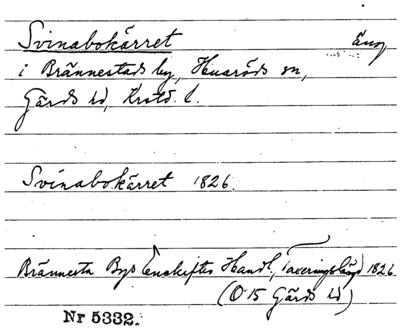 Svinabokärret äng
i Brännestads by, Huaröds sn,
Gärds hd, Krstd. l.
Svinabokärret 1826.
Brännesta Bys Enskiftes Handl, Taxeringslängd 1826
(O 15 Gärds hd)
Nr 5332.